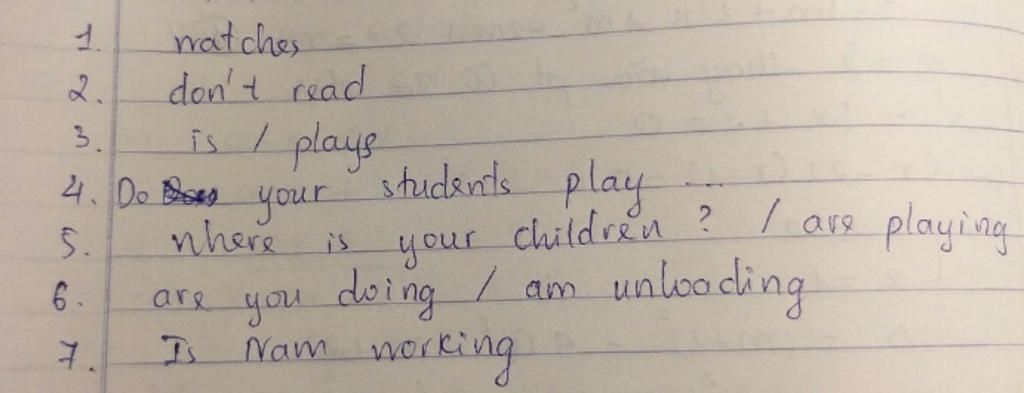 1. watches
2. don't read
3. is / plays
4. Do your students play ...
5. where is your children ? / are playing
6. are you doing / am unloading
7. Is Nam working